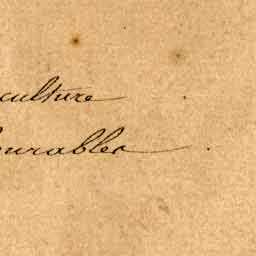 culture
ourables